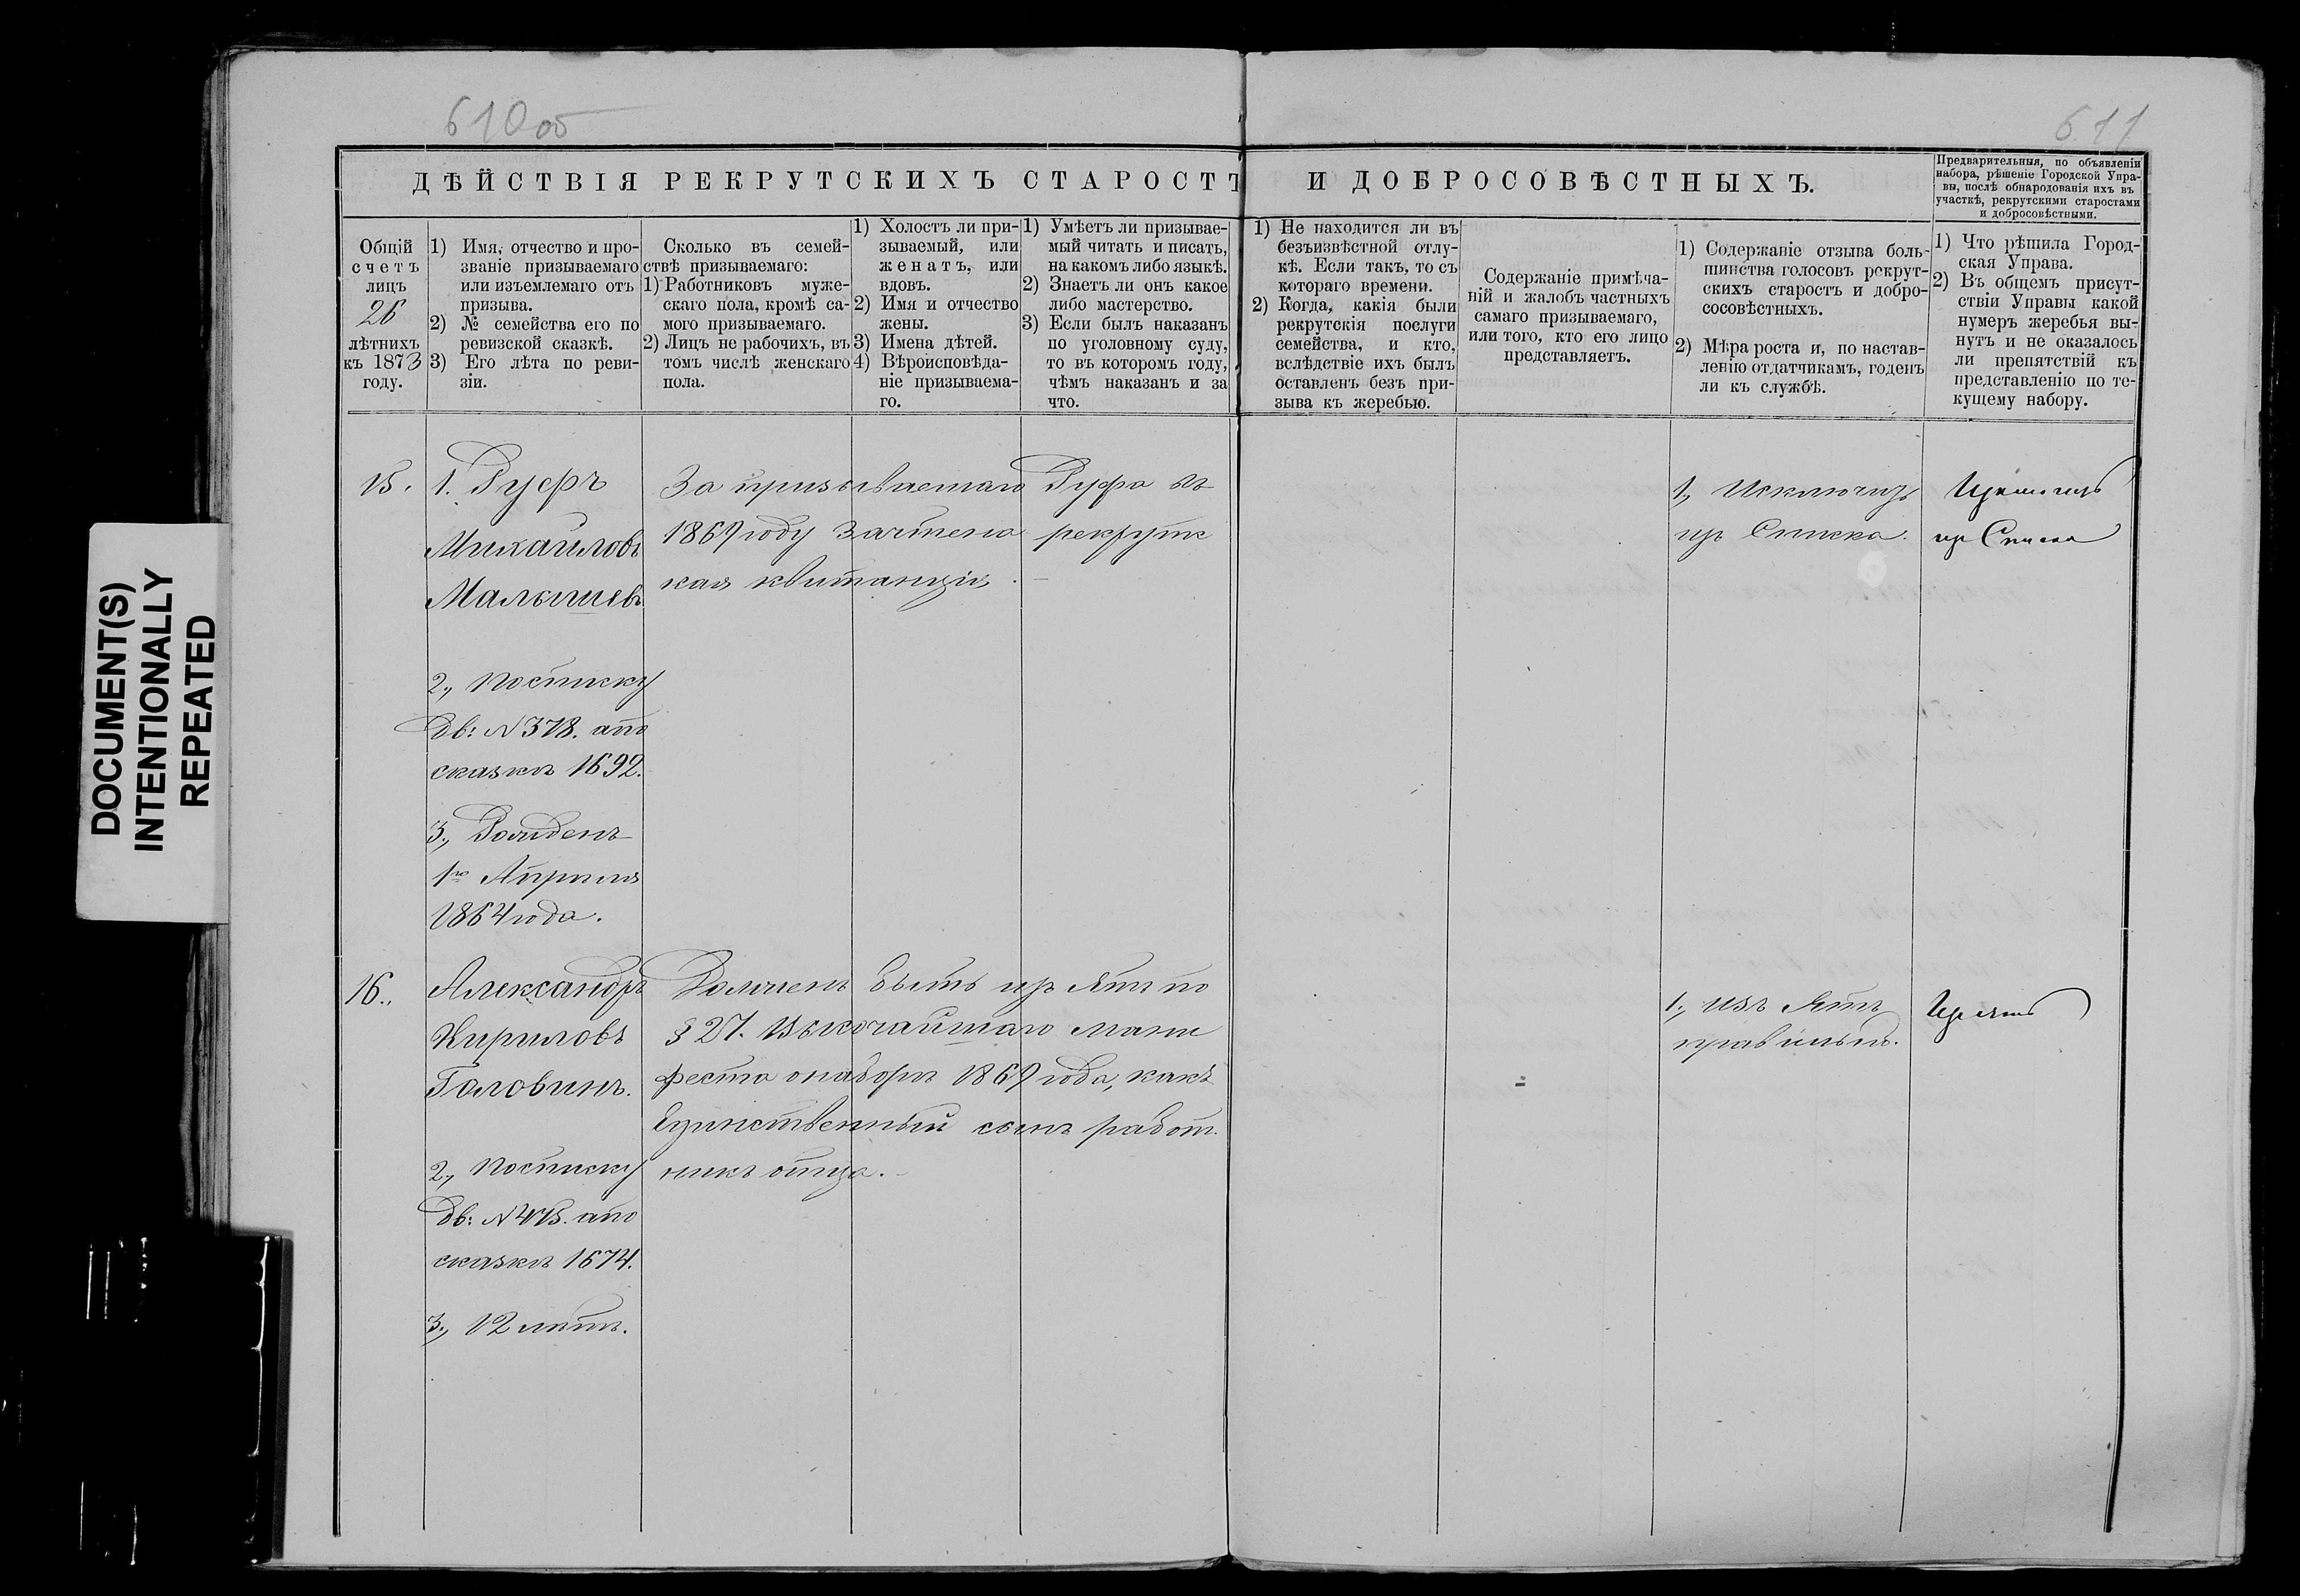 610 об
611
ДѢЙСТВІЯ РЕКРУТСКИХЪ СТАРОСТЪ И ДОБРОСОВѢСТНЫХЪ.
Предварительныя, по объявленіи
набора, рѣшеніе Городской Упра-
вы, послѣ обнародованія ихъ въ
участкѣ, рекрутскими старостами
и добросовѣстными.
Общій
счетъ
лицъ
26
лѣтнихъ
къ 1873
году.
1) Имя, отчество и про-
званіе призываемаго
или изъемлемаго отъ
призыва.
2) № семейства его по
ревизской сказкѣ.
3) Его лѣта по реви-
зіи.
Сколько въ семей-
ствѣ призываемаго:
1) Работниковъ муже-
скаго пола, кромѣ са-
мого призываемаго.
2) Лицъ не рабочихъ, въ
томъ числѣ женскаго
пола.
1) Холостъ ли при-
зываемый, или
женатъ, или
вдовъ.
2) Имя и отчество
жены.
3) Имена дѣтей.
4) Вѣроисповѣда-
ніе призываема-
го.
1) Умѣетъ ли призывае-
мый читать и писать,
на какомъ либо языкѣ.
2) Знаетъ ли онъ какое
либо мастерство.
3) Если былъ наказанъ
по уголовному суду,
то въ которомъ году,
чѣмъ наказанъ и за
что.
1) Не находится ли въ
безъизвѣстной отлу-
кѣ. Если такъ, то съ
котораго времени.
2) Когда, какія были
рекрутскія послуги
семейства, и кто,
вслѣдствіе ихъ былъ
оставленъ безъ при-
зыва къ жеребью.
Содержаніе примѣча-
ній и жалобъ частныхъ
самаго призываемаго,
или того, кто его лицо
представляетъ.
1) Содержаніе отзыва боль-
шинства голосовъ рекрут-
скихъ старостъ и добро-
сосовѣстныхъ.
2) Мѣра роста и, по настав-
ленію отдатчикамъ, годенъ
ли къ службѣ.
1) Что рѣшила Город-
ская Управа.
2) Въ общемъ присут-
ствіи Управы какой
нумеръ жеребья вы-
нутъ и не оказалось
ли препятствій къ
представленію по те-
кущему набору.
15.
1. Руфъ
Михайловъ
Малышевъ
2., Посписку
дв: N 378. апо
сказкѣ 1692.
3., Рожденъ
1го Апрѣля
1864 года.
За призываемаго Руфа въ
1869 году зачтена рекрутс
кая квитанція.
1., Исключить
изъ Списка.
изъ Списка
16.,
Александръ
Кириловъ
Головинъ.
2., Посписку
дв: N 415. апо
сказкѣ 1674.
3., 12 лѣтъ.
Долженъ быть изъятъ по
§ 27. Высочайшаго мани
феста онаборѣ 1869 года, какъ
Единственный сынъ работ.
никъ отца.
1., Изъятъ
правильно.
Изъятъ
DOCUMENT(S)
INTENTIONALLY
REPEATED